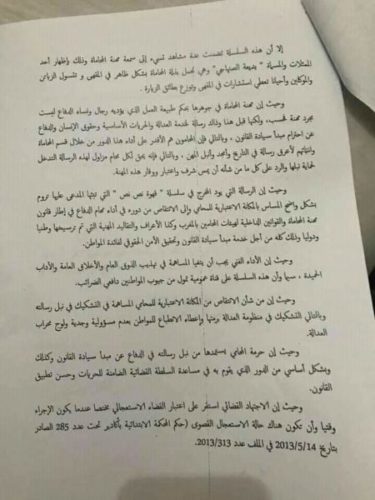 إلا أن هذه السلسلة تضمنت عدة مشاهد تسيء إلى سمعة مهنة المحاماة وذلك بإظهار أحد
الممثلات والمسماة " بديعة الصنهاجي" وهي تحمل بذلة المحاماة بشكل ظاهر في المقهى و تتسول الزبائن
والموكلين وأحيانا تعطي استشارات في المقهى وتوزع بطائق الزيارة .
وحيث إن مهنة المحاماة في جوهرها بحكم طبيعة العمل الذي يؤديه رجال ونساء الدفاع ليست
مجرد مهنة للكسب، ولكنها قبل هذا وذاك رسالة لخدمة العدالة والحريات الأساسية وحقوق الإنسان والدفاع
عن احترام مبدأ سيادة القانون ، وبالتالي فإن المحامون هم الأقدر على أداء هذا الدور من خلال قسم المحاماة
وانتمائهم لأعرق رسالة في التاريخ وأمجد وأنبل المهن ، وبالتالي فإنه يحق لكل محام مزاول لهذه الرسالة التدخل
لحماية نبلها والرد على كل ما من شأنه أن يمس شرف واعتبار ووقار هذه المهنة.
وحيث إن الرسالة التي يود المخرج في سلسلة " قهوة نص نص " التي تبثها المدعى عليها تروم
بشكل واضح المساس بالمكانة الاعتبارية للمحامي وإلى الانتقاص من دوره في أداء مهام الدفاع في إطار قانون
مهنة المحاماة والقوانين الداخلية لهيئات المحامين بالمغرب وكذا الأعراف والتقاليد المهنية التي تم ترسيخها وطنيا
ودوليا وذلك كله من أجل خدمة مبدأ سيادة القانون وتحقيق الأمن الحقوقي لفائدة المواطن.
وحيث إن الأداء الفني يجب أن يتغيا المساهمة في تهذيب الذوق العام والأخلاق العامة والآداب
الحميدة ، سيما وأن هذه السلسلة على قناة عمومية تمول من جيوب المواطنين دافعي الضرائب.
وحيث إن من شأن الانتقاص من المكانة الاعتبارية للمحامي المساهمة في التشكيك في نبل رسالته
وبالتالي التشكيك في منظومة العدالة برمتها وإعطاء الانطباع للمواطن بعدم مسؤولية وجدية ولوج محراب
العدالة.
وحيث إن حرمة المحامي يستمدها من نبل رسالته في الدفاع عن مبدأ سيادة القانون وكذلك
وبشكل أساسي من الدور الذي يقوم به في مساعدة السلطة القضائية الضامنة للحريات وحسن تطبيق
القانون.
وحيث إن الاجتهاد القضائي استقر على اعتبار القضاء الاستعجالي مختصا عندما يكون الإجراء
وقتيا وأن تكون هناك حالة الاستعجال القصوى (حكم المحكمة الابتدائية بأكادير تحت عدد 285 الصادر
بتاريخ 2013/5/14 في الملف عدد 2013/313.